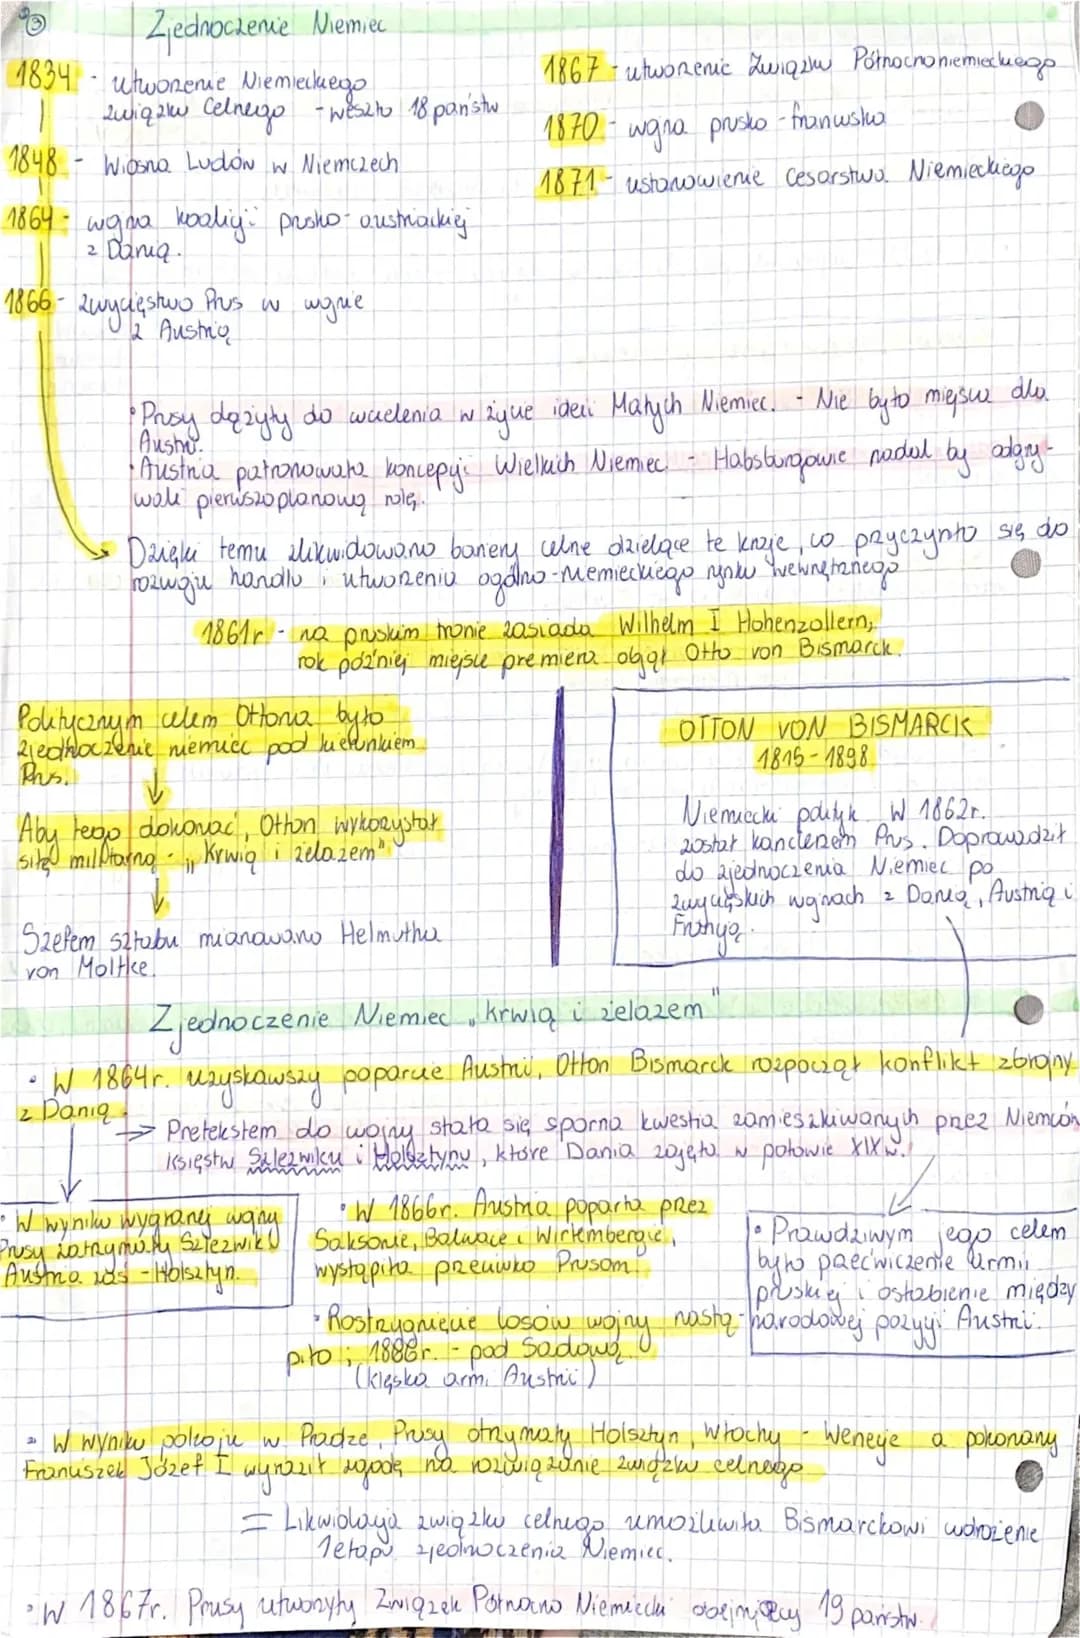 Zjednoczenie Niemiec
1834 - utworzenie Niemieckiego
związku Celnego - weszło 18 państw
1848 - Wiosna Ludów w Niemczech
1864 - wojna koalicji prusko-austriackiej
z Danią.
1866 - zwycięstwo Prus w wojnie
z Austrią
1867 - utworzenie Związku Północnoniemieckiego
1870 - wojna prusko-francuska
1871 - ustanowienie Cesarstwa Niemieckiego
• Prusy dążyły do wcielenia w życie ideii Małych Niemiec. - Nie było miejsca dla
Austrii.
• Austria patronowała koncepcji Wielkich Niemiec - Habsburgowie nadal by odgry-
wali pierwszoplanową rolę.
Dzięki temu zlikwidowano bariery celne dzielące te kraje, co przyczyniło się do
rozwoju handlu i utworzenia ogólno-niemieckiego rynku wewnętrznego
1861r - na pruskim tronie zasiada Wilhelm I Hohenzollern,
rok później miejsce premiera objął Otto von Bismarck.
Politycznym celem Ottona było
zjednoczenie niemiec pod kierunkiem
Prus.
Aby tego dokonać, Otton wykorzystał
siłę militarną - „Krwią i żelazem"
Szefem sztabu mianowano Helmutha
von Moltke.
OTTON VON BISMARCK
1815-1898
Niemiecki polityk. W 1862r.
został kanclerzem Prus. Doprowadził
do zjednoczenia Niemiec po
zwycięskich wojnach z Danią, Austrią i
Francją.
Zjednoczenie Niemiec „krwią i żelazem"
• W 1864r. uzyskawszy poparcie Austrii, Otton Bismarck rozpoczął konflikt zbrojny
z Danią.
Pretekstem do wojny stała się sporna kwestia zamieszkiwanych przez Niemców
księstw Szlezwiku i Holsztynu, które Dania zajęła w połowie XIXw.
• W wyniku wygranej wojny
Prusy zatrzymały Szlezwik
Austria zaś - Holsztyn.
• W 1866r. Austria poparta przez
Saksonie, Bawarie i Wirtembergie,
wystąpiła przeciwko Prusom.
• Prawdziwym jego celem
było przećwiczenie armii
pruskiej i osłabienie między
narodowej pozycji Austrii.
• Rostrzygnięcie losów wojny nastą-
piło ; 1866r. - pod Sadową.
(klęska arm. Austrii)
• W wyniku pokoju w Pradze, Prusy otrzymały Holsztyn, Włochy - Wenecje a pokonany
Franciszek Józef I wyraził zgodę na rozwiązanie związku celnego
= Likwidacja związku celnego umożliwiła Bismarckowi wdrożenie
1etapu zjednoczenia Niemiec.
• W 1867r. Prusy utworzyły Związek Północno Niemiecki obejmujący 19 państw.